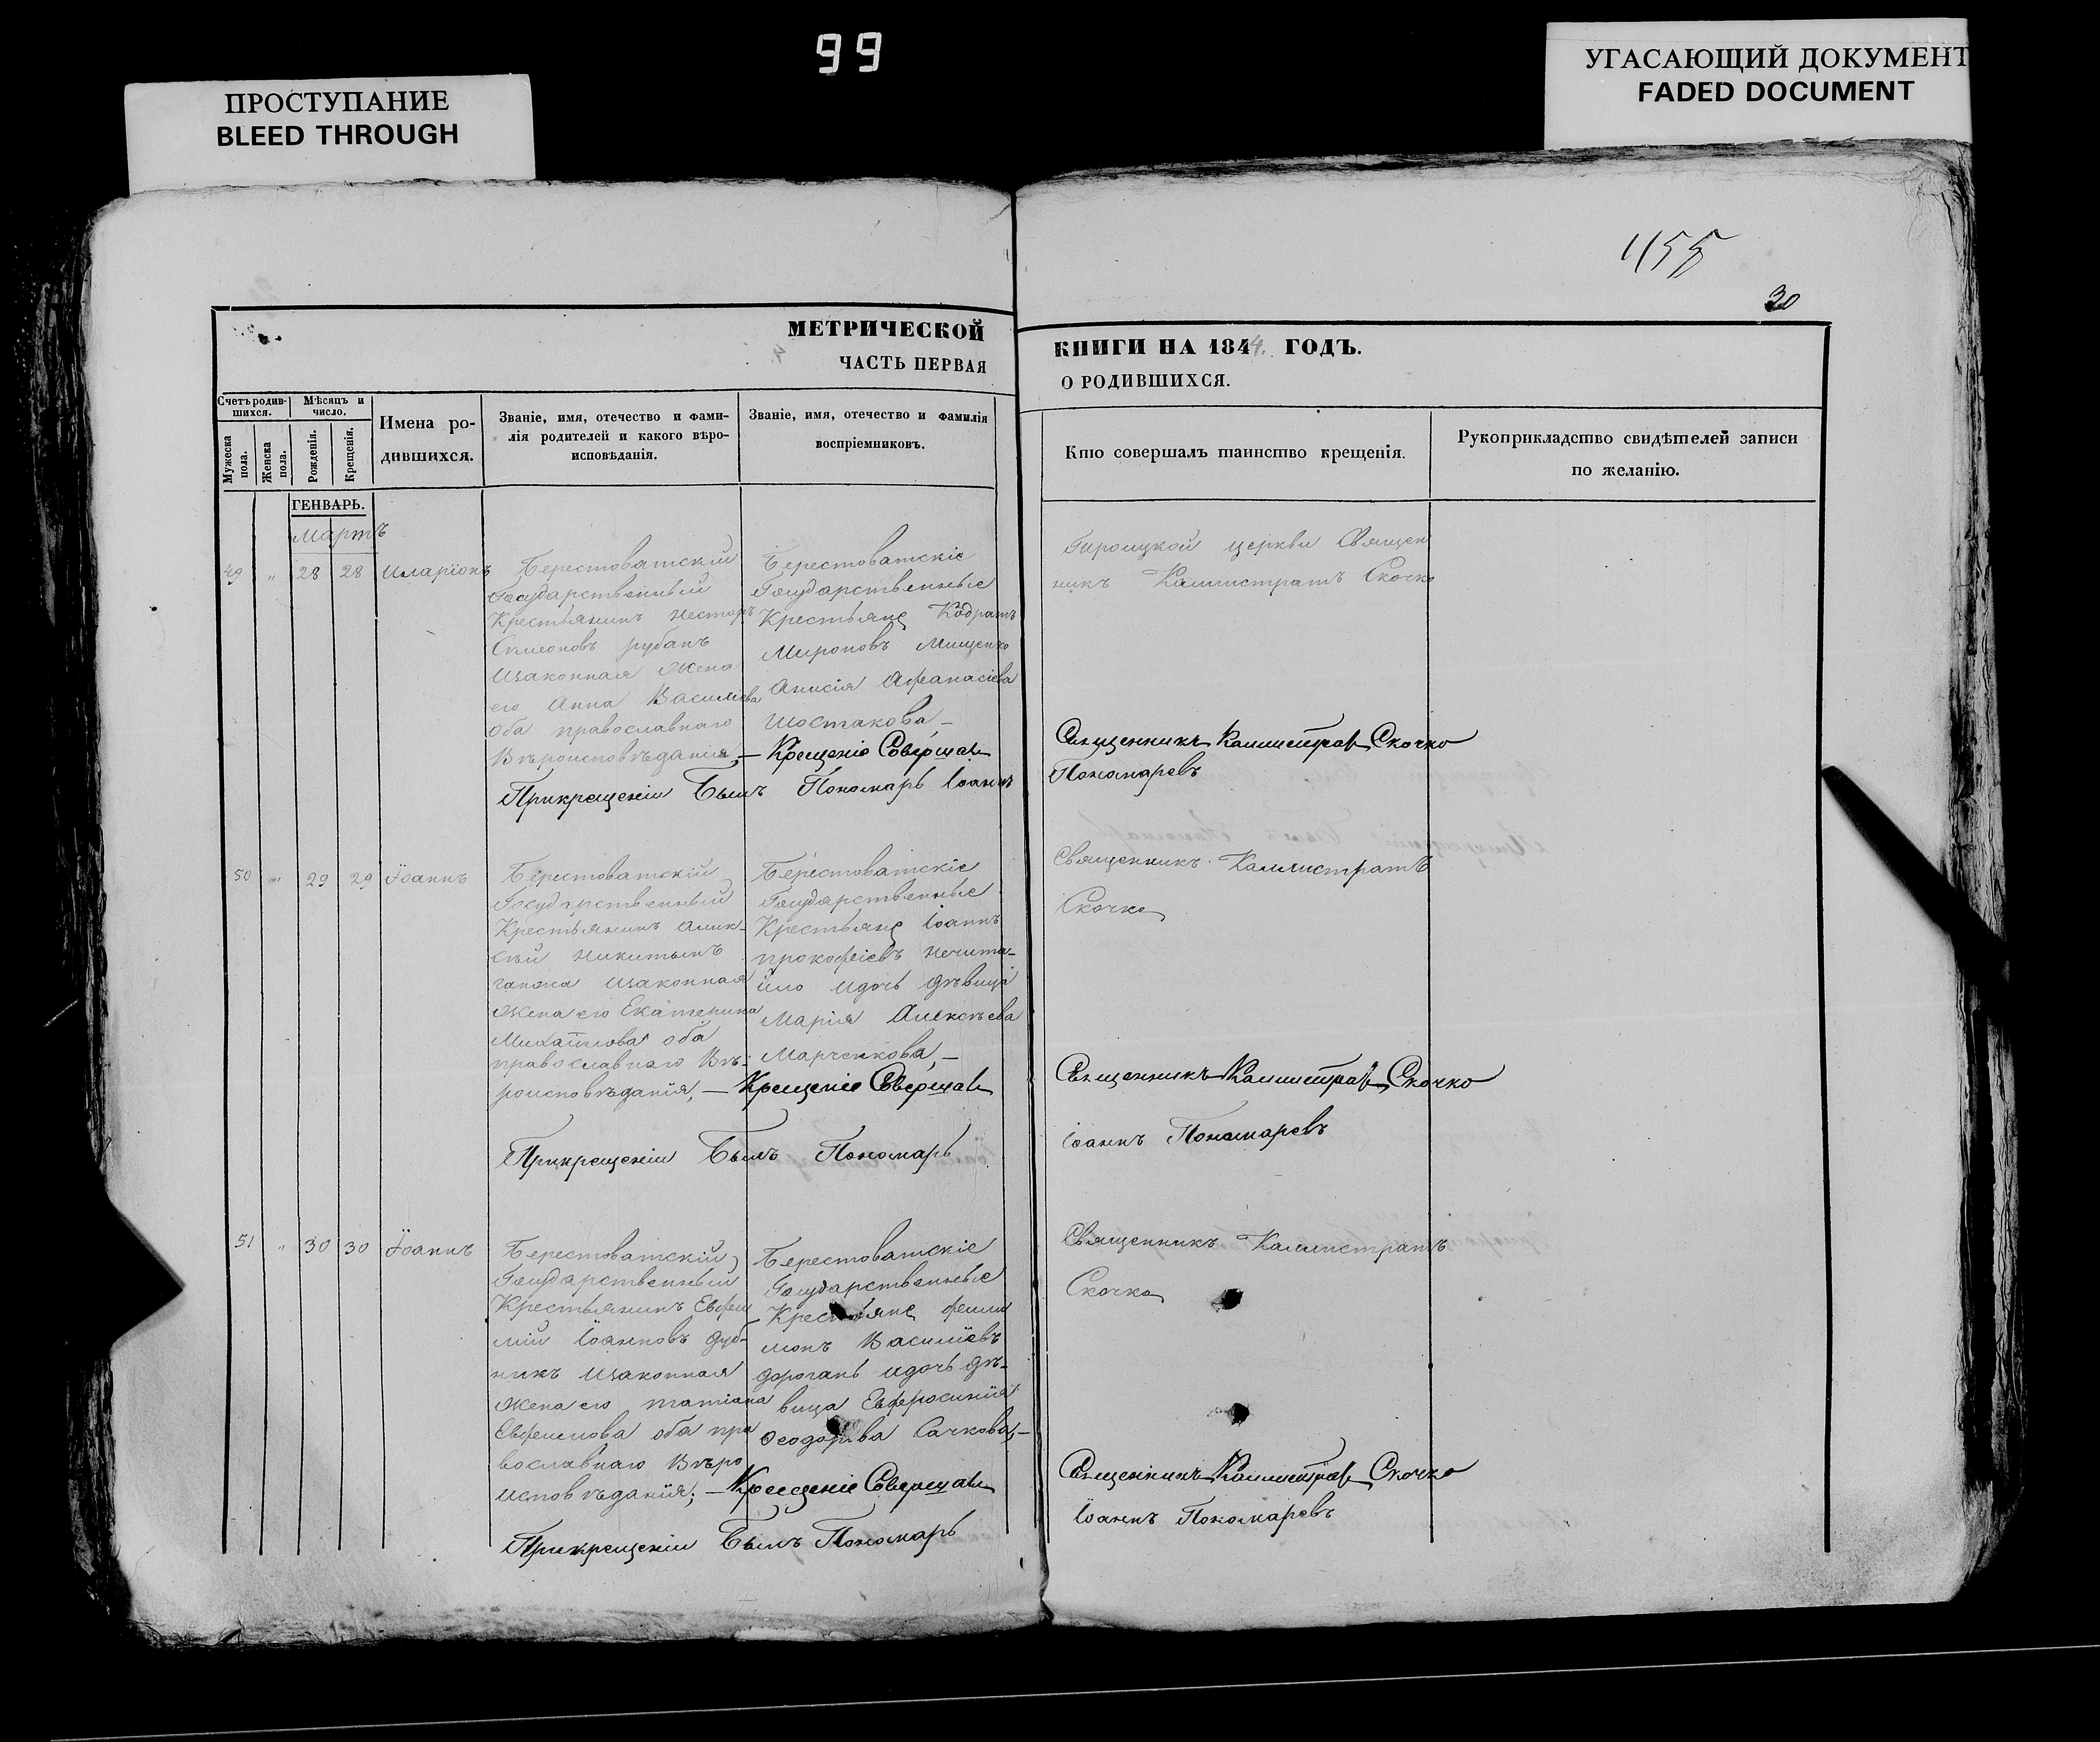 99
ПРОСТУПАНИЕ
BLEED THROUGH
УГАСАЮЩИЙ ДОКУМЕНТ
FADED DOCUMENT
30
МЕТРИЧЕСКОЙ
ЧАСТЬ ПЕРВАЯ
КНИГИ НА 1844. ГОДЪ.
О РОДИВШИХСЯ.
Счетъ родив-
шихся.
Мѣсяцъ и
число.
Мужеска
пола.
Женска
пола.
Рожденія.
Крещенія.
Имена ро-
дившихся.
Званіе, имя, отечество и фами-
лія родителей и какого вѣро-
исповѣданія.
Званіе, имя, отечество и фамилія
воспріемниковъ.
Кто совершалъ таинство крещенія.
Рукоприкладство свидѣтелей записи
по желанію.
ГЕНВАРЬ.
Мартъ
49 " 28 28 Иларіонъ
Берестоватскій
Государственный
Крестьянинъ Несторъ
Симеоновъ рубанъ
изаконная жена
его Анна Василіева
оба православнаго
Вѣроисповѣданія,—
Берестоватскіе
Государственные
Крестьяне Кодратъ
Мироновъ Мищенко
Анисія Афанасіева
Шостакова—
Крещеніе Совершал
Прикрещеніи Былъ Пономарь Іоаннъ
Троицкой церкви Священ
никъ Каллистратъ Скочко
Священникъ Каллистрат Скочко
Пономаревъ
50 " 29 29 Іоаннъ
Берестоватскій
Государственный
Крестьянинъ Алик-
сѣй Никитынъ
ганжа изаконная
жена его Екатерина
Михайлова оба
православнаго Вѣ-
роисповѣданія,—
Берестоватскіе
Государственные
Крестьяне Іоаннъ
прокофіевъ Нечита-
йло идочь дѣвица
Марія Алексѣева
Марченкова,—
Крещеніе Совершал
Прикрещеніи Былъ Пономарь
Священникъ Каллистратъ
Скочко
Священникъ Каллистрат Скочко
Іоаннъ Пономаревъ
51 " 30 30 Іоаннъ
Берестоватскій
Государственный
Крестьянинъ Евфи
мій Іоанновъ дуб-
никъ изаконная
жена его татіана
Евфимова оба пра
вославнаго Вѣро
исповѣданія;—
Берестоватскіе
Государственные
Крестьяне фили
монъ Василіевъ
дороганъ идочь дѣ-
вица Евфросинія
Ѳеодорова Сачкова,—
Крещеніе Совершал
Прикрещеніи Былъ Пономарь
Священникъ Каллистратъ
Скочко
Священникъ Каллистрат Скочко
Іоаннъ Пономаревъ